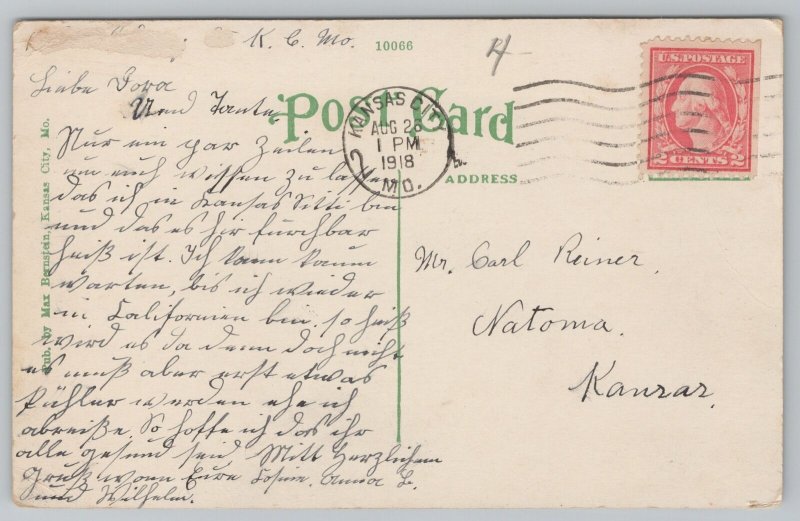 K. C. Mo.
10066
4
U.S. POSTAGE
2 CENTS 2
Post Card
KANSAS CITY
AUG 28
1 PM
1918
MO.
2
ADDRESS
Pub. by Max Bernstein, Kansas City, Mo.
Liebe Dora
Uend Tante
Nur ein par Zeilen
um euch wissen zu lassen
das ich in Kansas Sitti bin
und das es hir furchbar
heiß ist. Ich kann kaum
warten, bis ich wieder
in Californien bin. so heiß
wird es da denn doch nicht
es muß aber erst etwas
kühler werden ehe ich
abreiße. So hoffe ich das ihr
alle gesund seid. Mitt Herzlichem
Gruß von Eure Cosine. Anna L.
und Wilhelm.
Mr. Carl Reiner,
Natoma.
Kansas,